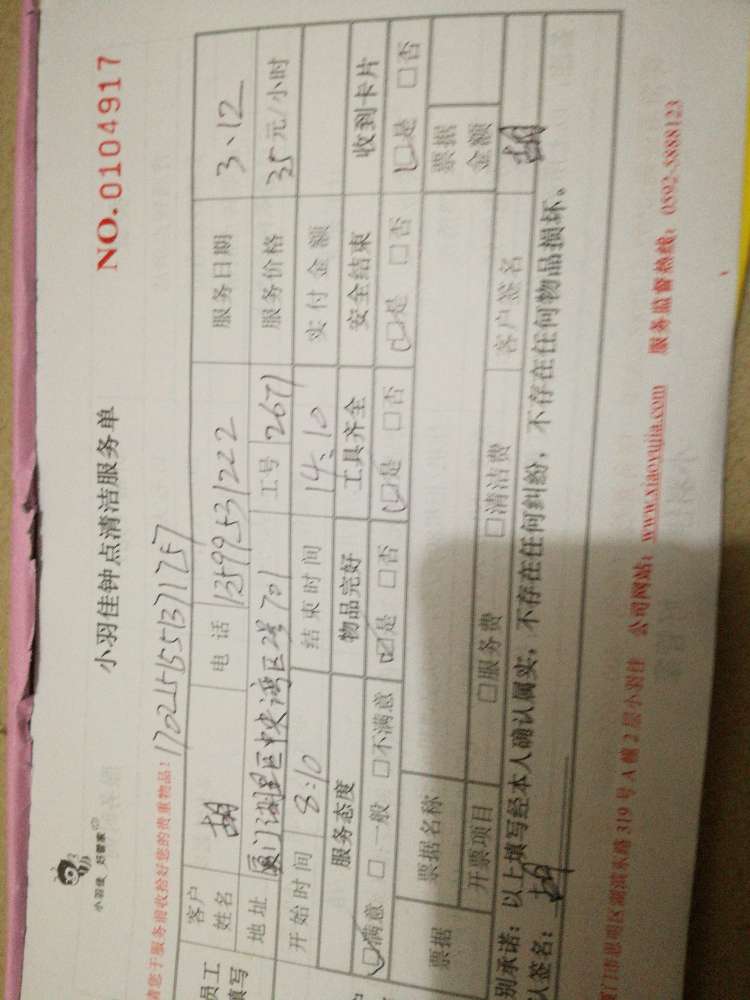 小羽佳 好管家
小羽佳钟点清洁服务单
NO.0104917
请您于服务前收拾好您的贵重物品！
170215155131757
员工
填写
客户姓名 胡 电话 13599531222 服务日期 3.12
地址 厦门湖里区中央湾区2号701 工号 2671 服务价格 35元/小时
开始时间 8:10 结束时间 14:10 实付金额
服务态度 物品完好 工具齐全 安全结束 收到卡片
☑满意 □一般 □不满意 ☑是 □否 ☑是 □否 ☑是 □否 ☑是 □否
票据 票据名称 票据金额
开票项目 □服务费 □清洁费 客户签名 胡
别承诺：以上填写经本人确认属实，不存在任何纠纷，不存在任何物品损坏。
认签名：胡
门市思明区湖滨东路319号A幢2层小羽佳 公司网站：www.xiaoyujia.com 服务监督热线：0592-5888123